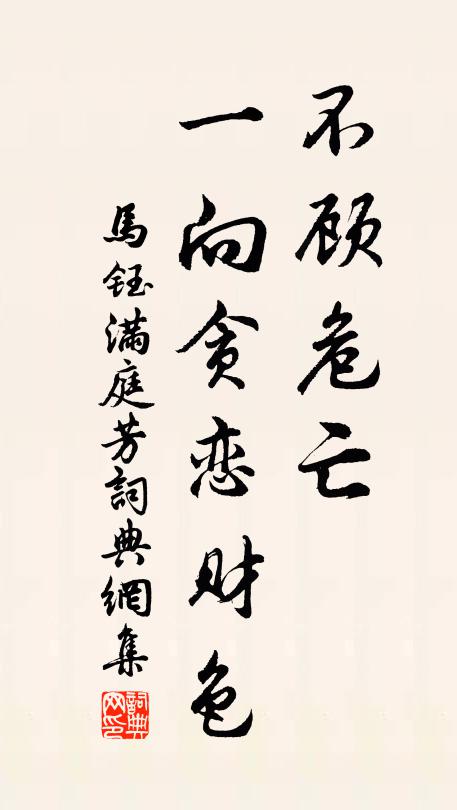 不顾危亡
一向贪恋财色
馬鈺滿庭芳詞典網集
詞典
网印